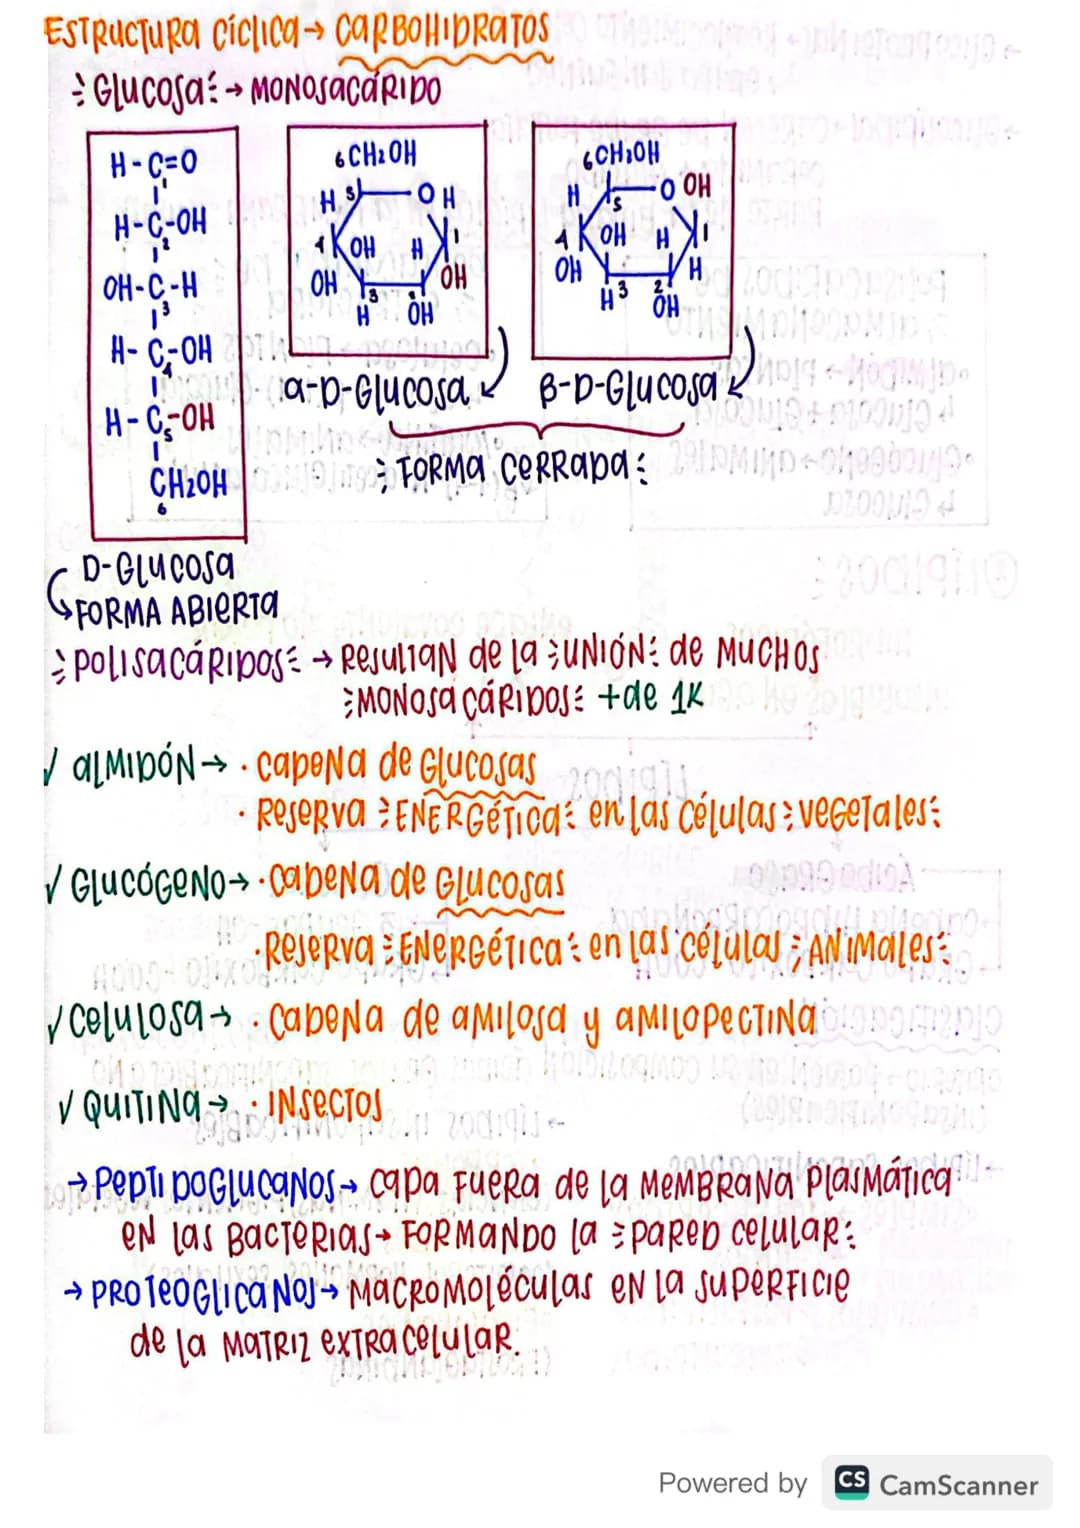 ESTRUCTURA CÍCLICA → CARBOHIDRATOS
GLUCOSA → MONOSACÁRIDO
H-C=O
1
H-C-OH
2
OH-C-H
3
H-C-OH
4
H-C-OH
5
CH2OH
6
6 CH2OH
H 5 O H
4 OH H 1
OH 3 OH
H OH
6 CH2OH
H 5 O OH
4 OH H 1
OH H
H 3 2 OH
α-D-GLUCOSA β-D-GLUCOSA
FORMA CERRADA
D-GLUCOSA
FORMA ABIERTA
POLISACÁRIDOS → RESULTAN de la UNIÓN de MUCHOS
MONOSACÁRIDOS + de 1K
✓ ALMIDÓN → · CADENA de GLUCOSAS
· RESERVA ENERGÉTICA en las células VEGETALES
✓ GLUCÓGENO → · CADENA de GLUCOSAS
· RESERVA ENERGÉTICA en las células ANIMALES
✓ CELULOSA → · CADENA de AMILOSA y AMILOPECTINA
✓ QUITINA → · INSECTOS
→ PEPTIDOGLUCANOS → CAPA FUERA de la MEMBRANA PLASMÁTICA
EN las BACTERIAS → FORMANDO la PARED CELULAR
→ PROTEOGLICANOS → MACROMOLÉCULAS EN la SUPERFICIE
de la MATRIZ EXTRACELULAR.
Powered by CS CamScanner